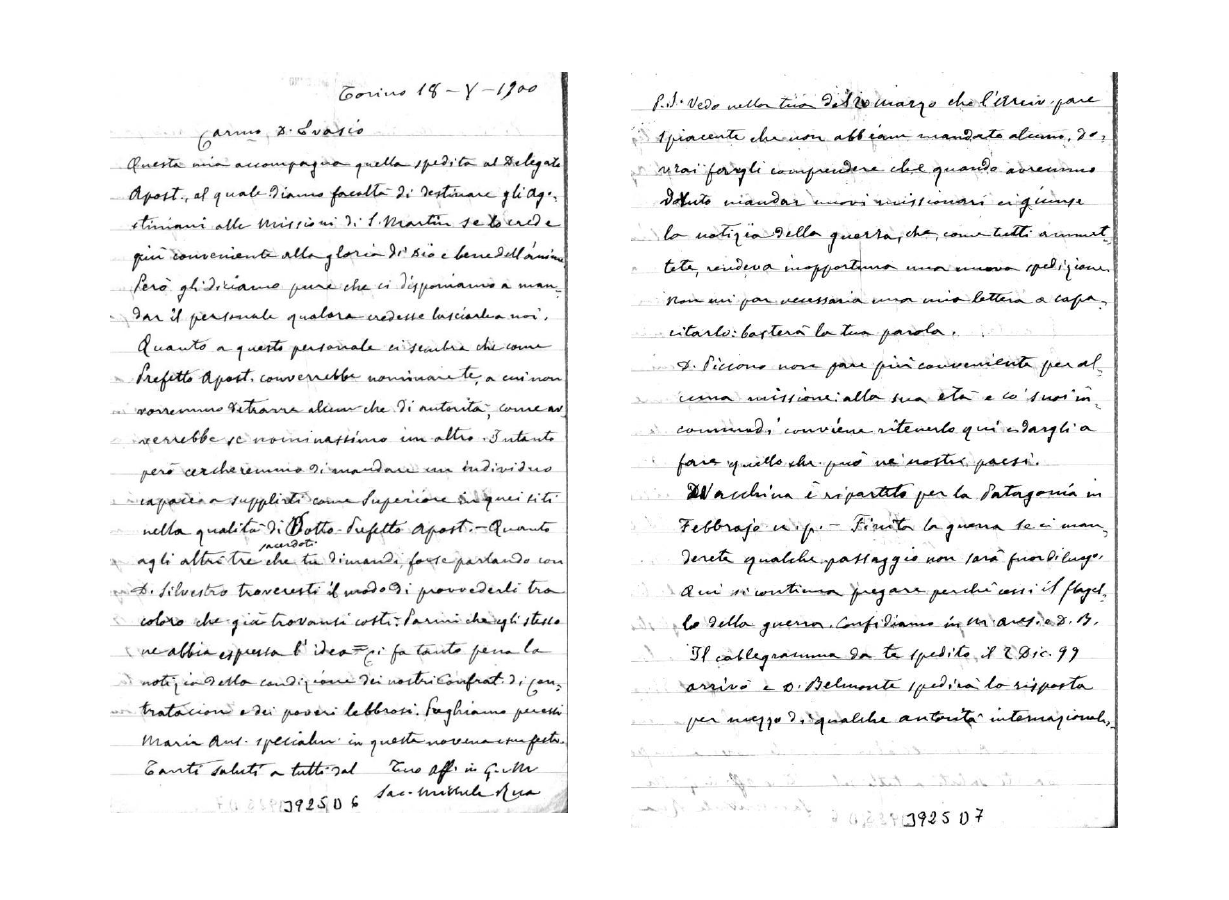 Torino 18 - V - 1900
Carmo D. Evasio
Questa mia accompagna quella spedita al Delegato
Apost., al quale diamo facoltà di destinare gli Ago-
stiniani alle Missioni di S. Martin se lo crede
più conveniente alla gloria di Dio e bene dell'anime
Però gli diciamo pure che ci disponiamo a man-
dar il personale qualora credesse lasciarlea noi.
Quanto a questo personale ci sembra che come
Prefetto Apost. converrebbe nominare te, a cui non
vorremmo detrarre alcun che di autorità, come av-
verrebbe se nominassimo un altro. Intanto
però cercheremmo di mandare un individuo
capace a supplirti come Superiore in quei siti
nella qualità di Sotto-Prefetto Apost. - Quanto
sacerdoti
agli altri tre che tu dimandi, forse parlando con
D. Silvestro troveresti il modo di provvederli tra
coloro che già trovansi costì. Parmi che egli stesso
ne abbia espressa l'idea = Ci fa tanto pena la
notizia della condizione dei nostri Confrat. di Con-
tratacion e dei poveri lebbrosi. Preghiamo per essi
Maria Aus. specialm in questa novena e sua festa.
Tanti saluti a tutti dal Tuo aff. in G. e M
Sac. Michele Rua
3925 D 6
P.S. Vedo nella tua del 20 marzo che l'Arciv. pare
spiacente che non abbiam mandato alcuno. Do-
vrai fargli comprendere che quando avremmo
dovuto mandar nuovi missionari ci giunse
la notizia della guerra, che, come tutti ammet-
tete, rendeva inopportuna una nuova spedizione.
Non mi par necessaria una mia lettera a capa-
citarlo: basterà la tua parola.
D. Piccono non pare più conveniente per al-
cuna missione: alla sua età e co' suoi in-
commodi conviene ritenerlo qui e dargli a
fare quello che può ne' nostri paesi.
D. Vacchina è ripartito per la Patagonia in
Febbrajo u. p. - Finita la guerra se ci man-
derete qualche passaggio non sarà fuor di luogo.
Qui si continua pregare perchè cessi il flagel-
lo della guerra. Confidiamo in M. Aus. e D. B.
Il cablegramma da te spedito il 2 Dic. 99
arrivò e D. Belmonte spedirà la risposta
per mezzo di qualche autorità internazionale.
3925 D 7